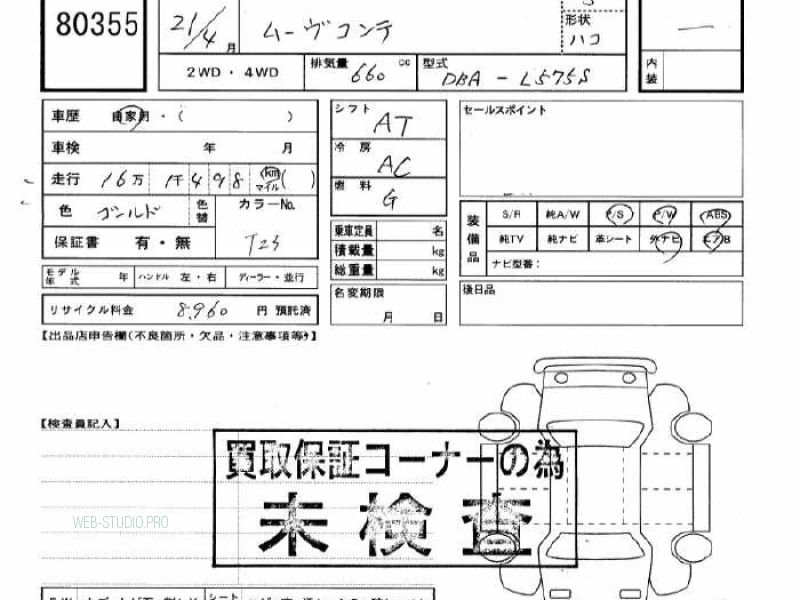 80355
21/4 月
ムーヴコンテ
形状
ハコ
内装
2WD・4WD
排気量 660 cc
型式 DBA - L575S
車歴 自家用・( )
シフト AT
セールスポイント
車検 年 月
冷房 AC
走行 16万 1千498 km マイル ( )
燃料 G
色 ゴールド 色替
カラーNo. T23
保証書 有・無
乗車定員 名
積載量 kg
総重量 kg
装備品
S/R 純A/W P/S P/W ABS
純TV 純ナビ 革シート 外ナビ エアB
ナビ型番:
モデル年式 年 ハンドル 左・右 ディーラー・並行
名変期限
月 日
後日品
リサイクル料金 8,960 円 預託済
【出品店申告欄(不良箇所・欠品・注意事項等)】
【検査員記入】
買取保証コーナーの為
未検査
WEB-STUDIO.PRO